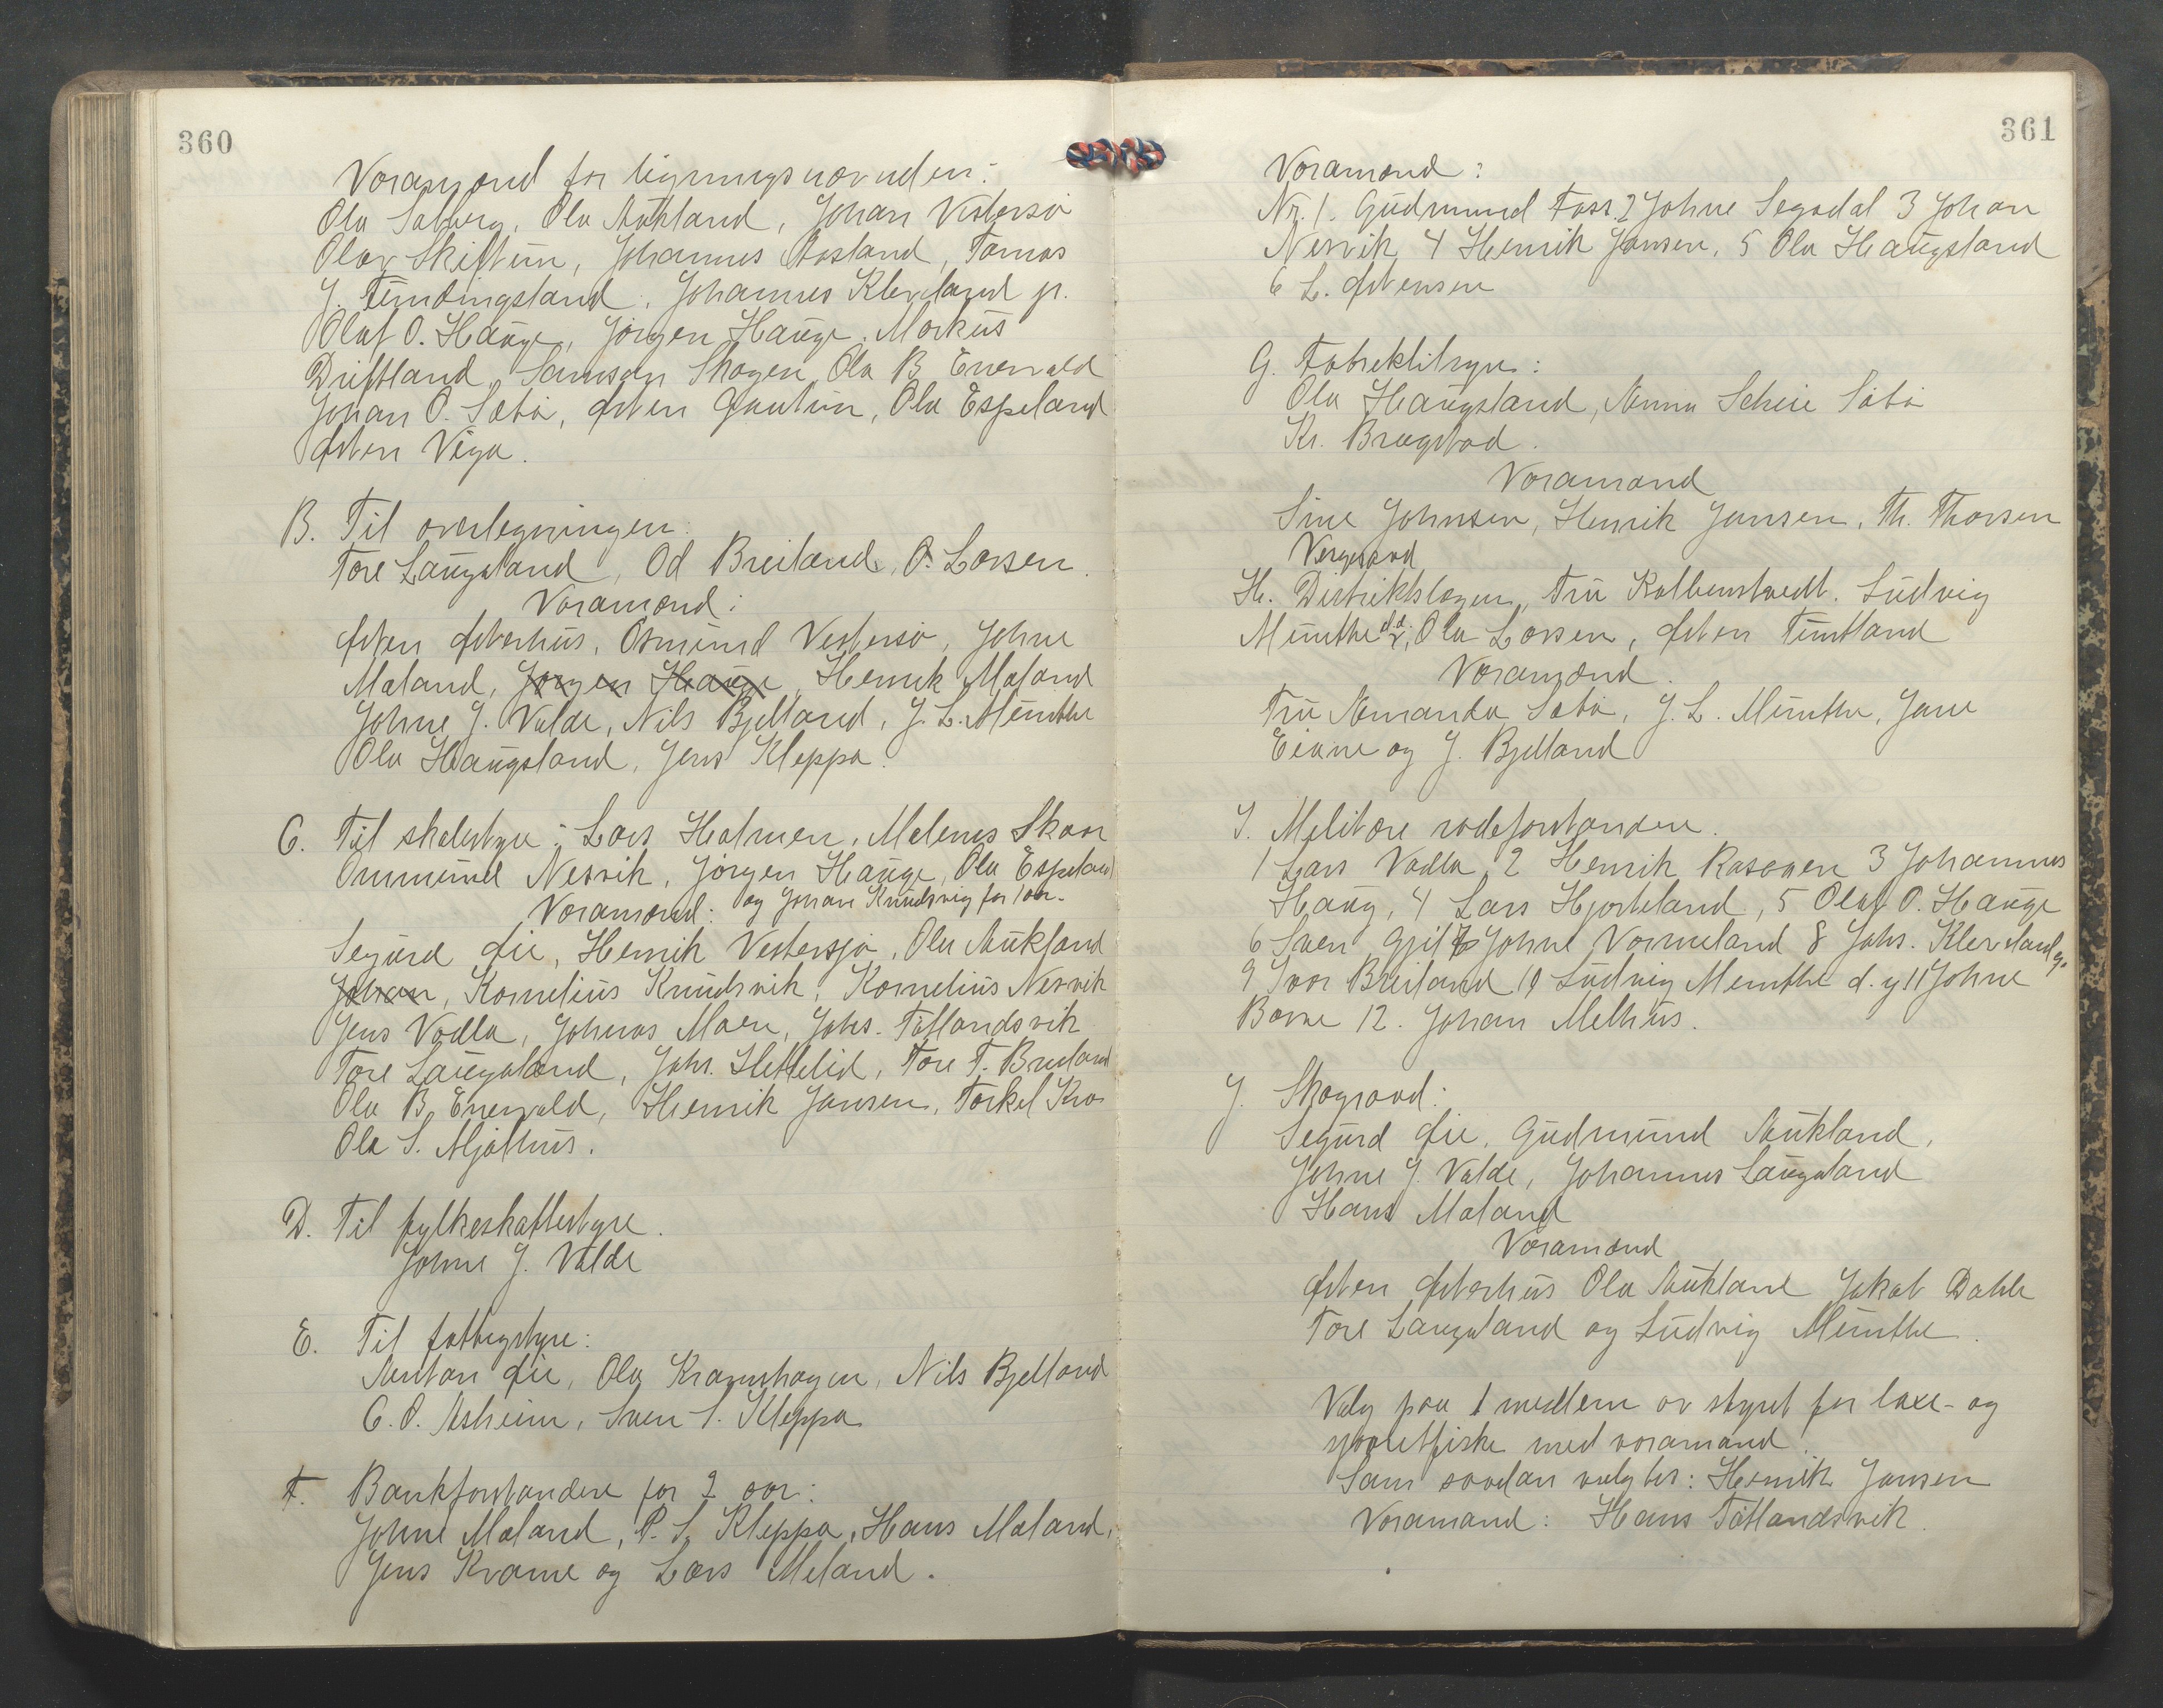 360
Varamænd for ligningsnævnden:
Ola Søberg, Ola Aukland, Johan Vestersjø
Olav Skiftun, Johannes Aasland, Tomas
J. Tundingsland, Johannes Kleveland jr.
Olaf O. Hauge, Jørgen Hauge, Markus
Driftland, Samson Skogen, Ola B. Enevald
Johan O. Sæbø, Østen Gautun, Ola Espeland
Østen Viga.
B. Til overlegningen:
Tore Laugaland, Od Breiland, O. Larsen.
Varamænd:
Østen Østerhus, Osmund Vestersjø, Johne
Mæland, Jørgen Hauge, Henrik Mæland
Johne J. Valde, Nils Bjelland, J. L. Munthe
Ola Haugsland, Jens Kleppa.
C. Til skolestyre: Lars Holmen, Malenus Skaar
Ommund Nesvik, Jørgen Hauge, Ola Espeland
og Johan Knudsvig for 1 aar.
Varamænd:
Segurd Øie, Henrik Vestersjø, Ola Aukland
Johan, Kornelius Knudsvik, Kornelius Nesvik
Jens Vadla, Johnas Maen, Johs. Tøtlandsvik
Tore Laugaland, Johs. Hettelid, Tore T. Breiland
Ola B. Enevald, Henrik Jansen, Torkel Kro
Ola S. Mjølhus.
D. Til fylkeskattestyre.
Johne J. Valde
E. Til fattigstyre:
Anton Øie, Ola Kramshagen, Nils Bjelland
C. O. Asheim, Sven S. Kleppa
F. Bankforstandere for 2 aar:
Johne Mæland, P. S. Kleppa, Hans Mæland,
Jens Krame og Lars Meland.
361
Varamænd:
Nr. 1. Gudmund Foss. 2 Johne Segadal 3 Johan
Nesvik 4 Henrik Jansen, 5 Ola Haugsland
6 L. Østensen
G. Fabriktilsyn:
Ola Haugsland, Anna Scheie Sæbø
Kr. Bragstad.
Varamænd
Sine Johnsen, Henrik Jansen, Th. Thorsen
Vergeraad
H. Distriktslægen, Fru Kolbenstvedt. Ludvig
Munthe d. æ., Ola Larsen, Østen Tuntland
Varamænd.
Fru Amanda Sæbø, J. L. Munthe, Jane
Eiane og J. Bjelland
I. Melitære rodeforstandere.
1 Lars Vadla 2 Henrik Rasagen 3 Johannes
Haug, 4 Lars Hjorteland, 5 Olaf O. Hauge
6 Sven Gjil 7 Johne Vormeland 8 Johs. Kleveland jr.
9 Ivar Breiland 10 Ludvig Munthe d. y. 11 Johne
Barne 12. Johan Melhus.
J. Skograad:
Segurd Øie, Gudmund Aukland,
Johne J. Valde, Johannes Laugaland
Hans Mæland
Varamænd
Østen Østerhus Ola Aukland Jakob Dahle
Tore Laugaland og Ludvig Munthe.
Valg paa 1 medlem av styret for laxe- og
sjøøretfiske med varamand.
Som saadan valgtes: Henrik Jansen
Varamand: Hans Tøtlandsvik.